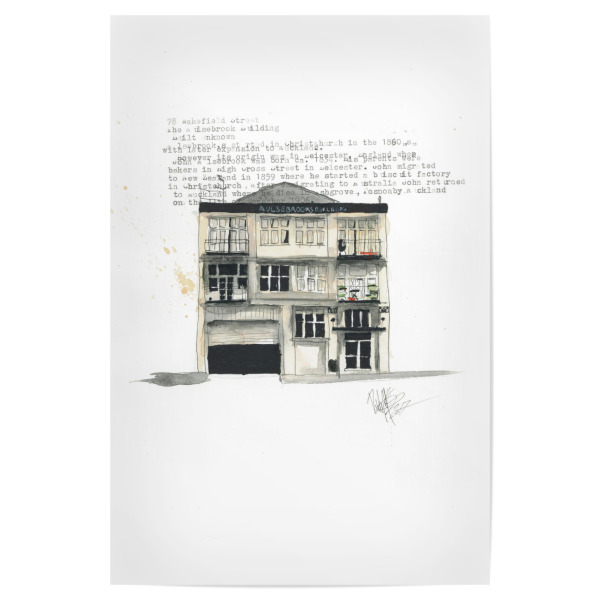 78 Wakefield Street
The Aulsebrook Building
Built unknown
Aulsebrook started in Christchurch in the 1860,s,
with later expansion to Auckland.
however its origin was in Leicester, England when
John A lsebrook was born ca. 1834. His parents were
bakers in High Cross Street in Leicester. John migrated
to New Zealand in 1859 where he started a biscuit factory
in Christchurch, after migrating to Australia John returned
to Auckland where he died in Ashgrove, Ponsonby.Auckland
on the
AULSEBROOKS